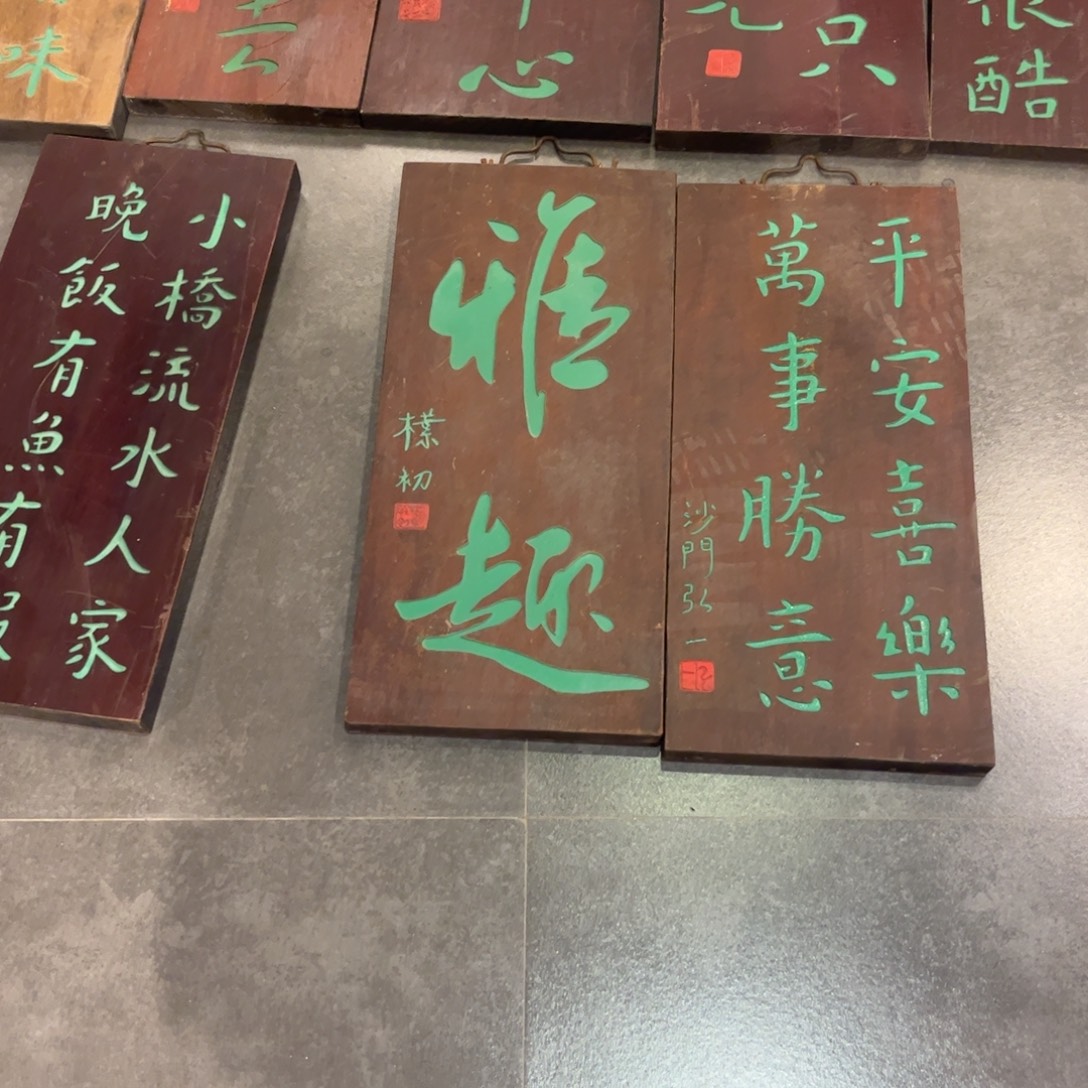 味
去
心
只
很
酷
小橋流水人家
晚飯有魚有蝦
雅趣
樸初
平安喜樂
萬事勝意
沙門弘一